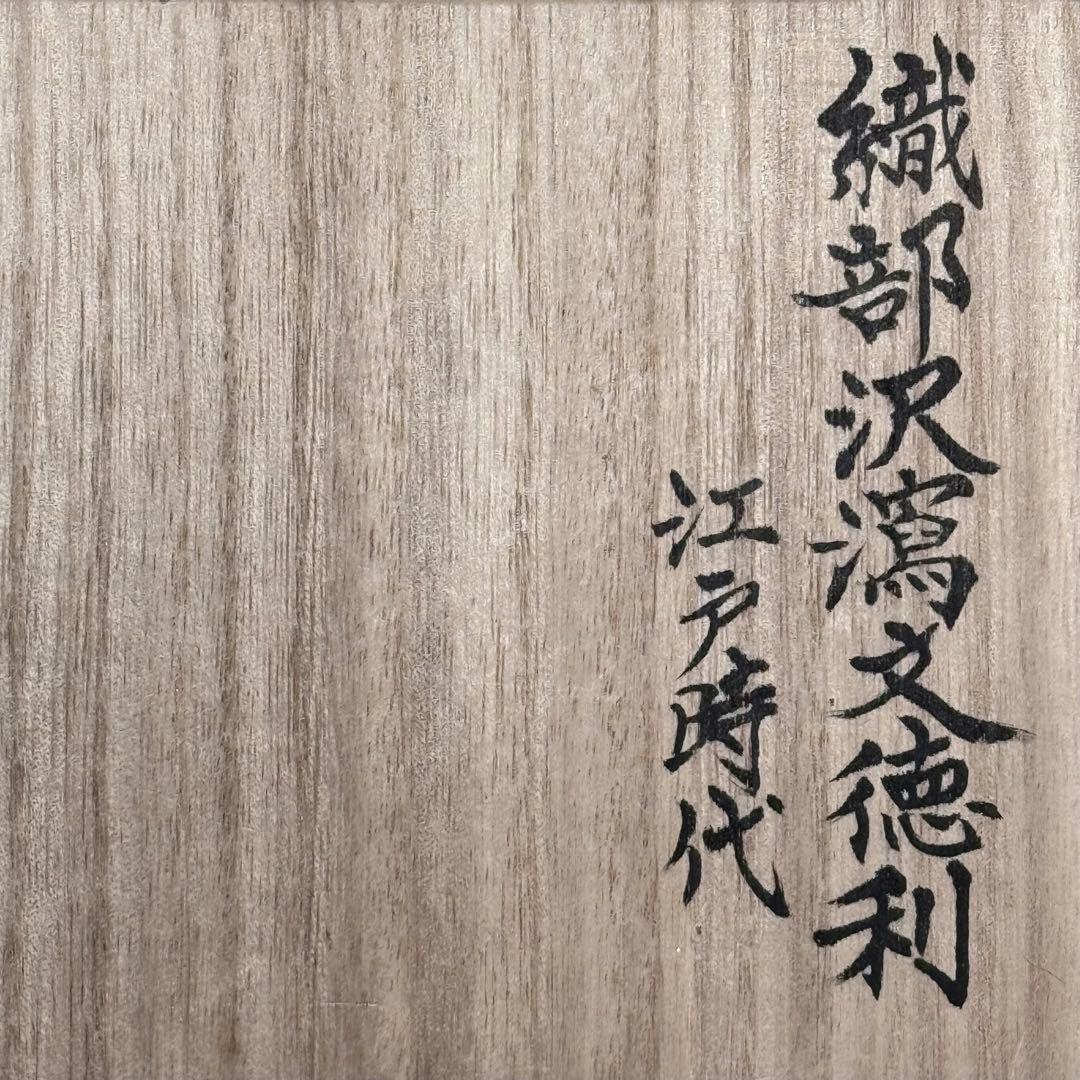 織部沢瀉文徳利
江戸時代